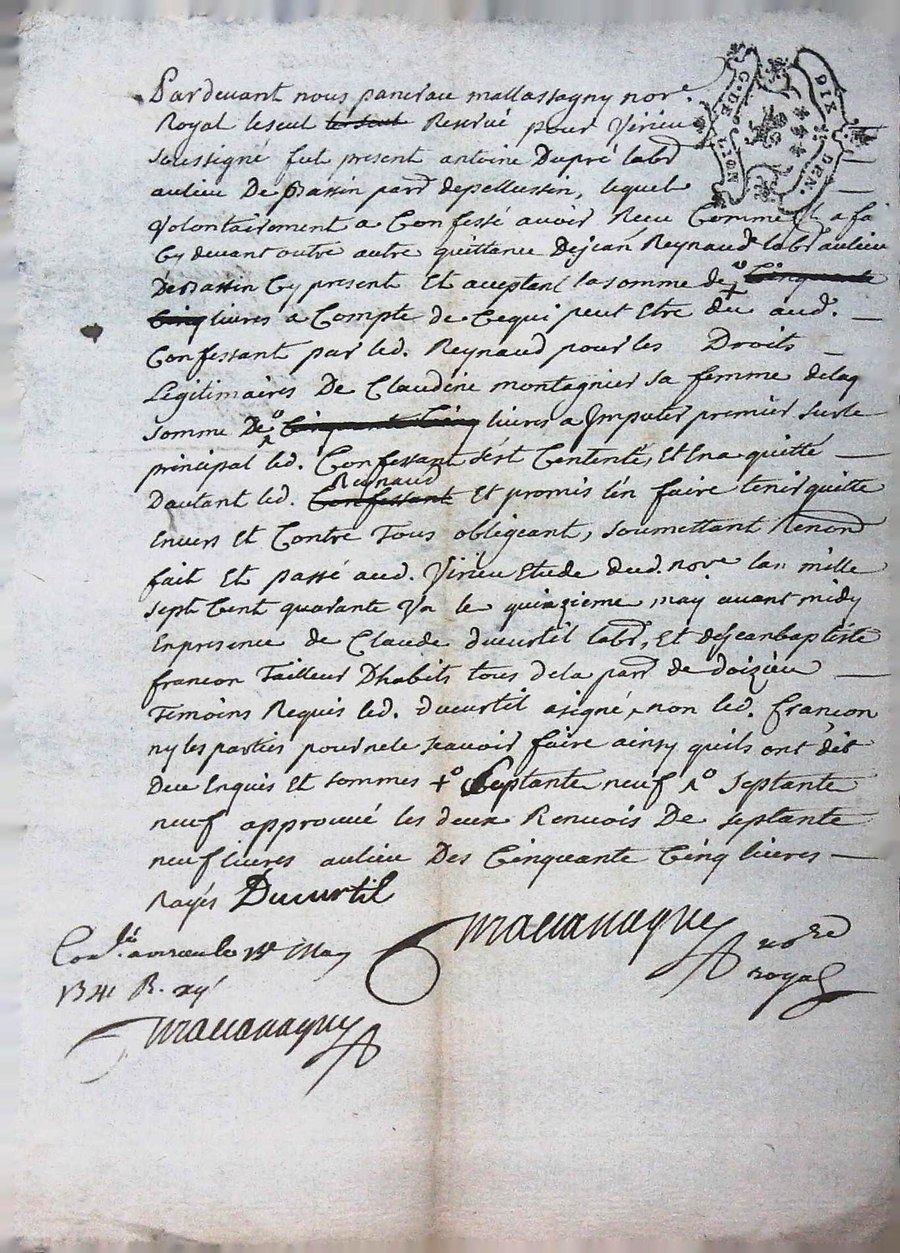 Pardevant nous pancrace mallassagny nore.
Royal leseul leseul Reservé pour Virieu
soussigné fut present antoine Dupré labr
aulieu De Bassin pard depellussin, lequel
volontairement a Confessé avoir Receu Comme il a fa
Cy devant outre autre quittance Dejean Reynaud labr aulieu
De Bassin Cy present Et acceptant la somme de +o Cinquante
Cinq livres a Compte de Cequi peut Etre du aud.
Confessant par led. Reynaud pour les Droits
Légitimaires De Claudine montagnier sa femme delaq
somme De o Cinquante Cinq livres a Imputer premier sur le
principal led. Confessant s'est Contenté, et Ena quitté
Reynaud
Dautant led. Confessant Et promis l'en faire tenir quitte
Envers Et Contre Tous obligeant, soumettant Renond
fait Et passé aud. Virieu Etude dud. nore lan mille
sept Cent quarante Vn le quinzieme may avant midy
En presence de Claude ducurtil labr, Et dejeanbaptiste
françon Tailleur Dhabits tous dela pard de doizieu
Temoins Requis led. ducurtil a signé, non led. françon
ny les parties pour ne le scavoir faire ainsy quils ont dit
Deu Enquis Et sommés +o Septante neuf xo septante
neuf approuvé les deux Renvois De septante
neuf livres aulieu Des Cinquante Cinq livres
Rayés Ducurtil
Mallassagny nore
royal
Conlé a
May
1741 R.
Mallassagny
G. DE LYON
DIX DEN.